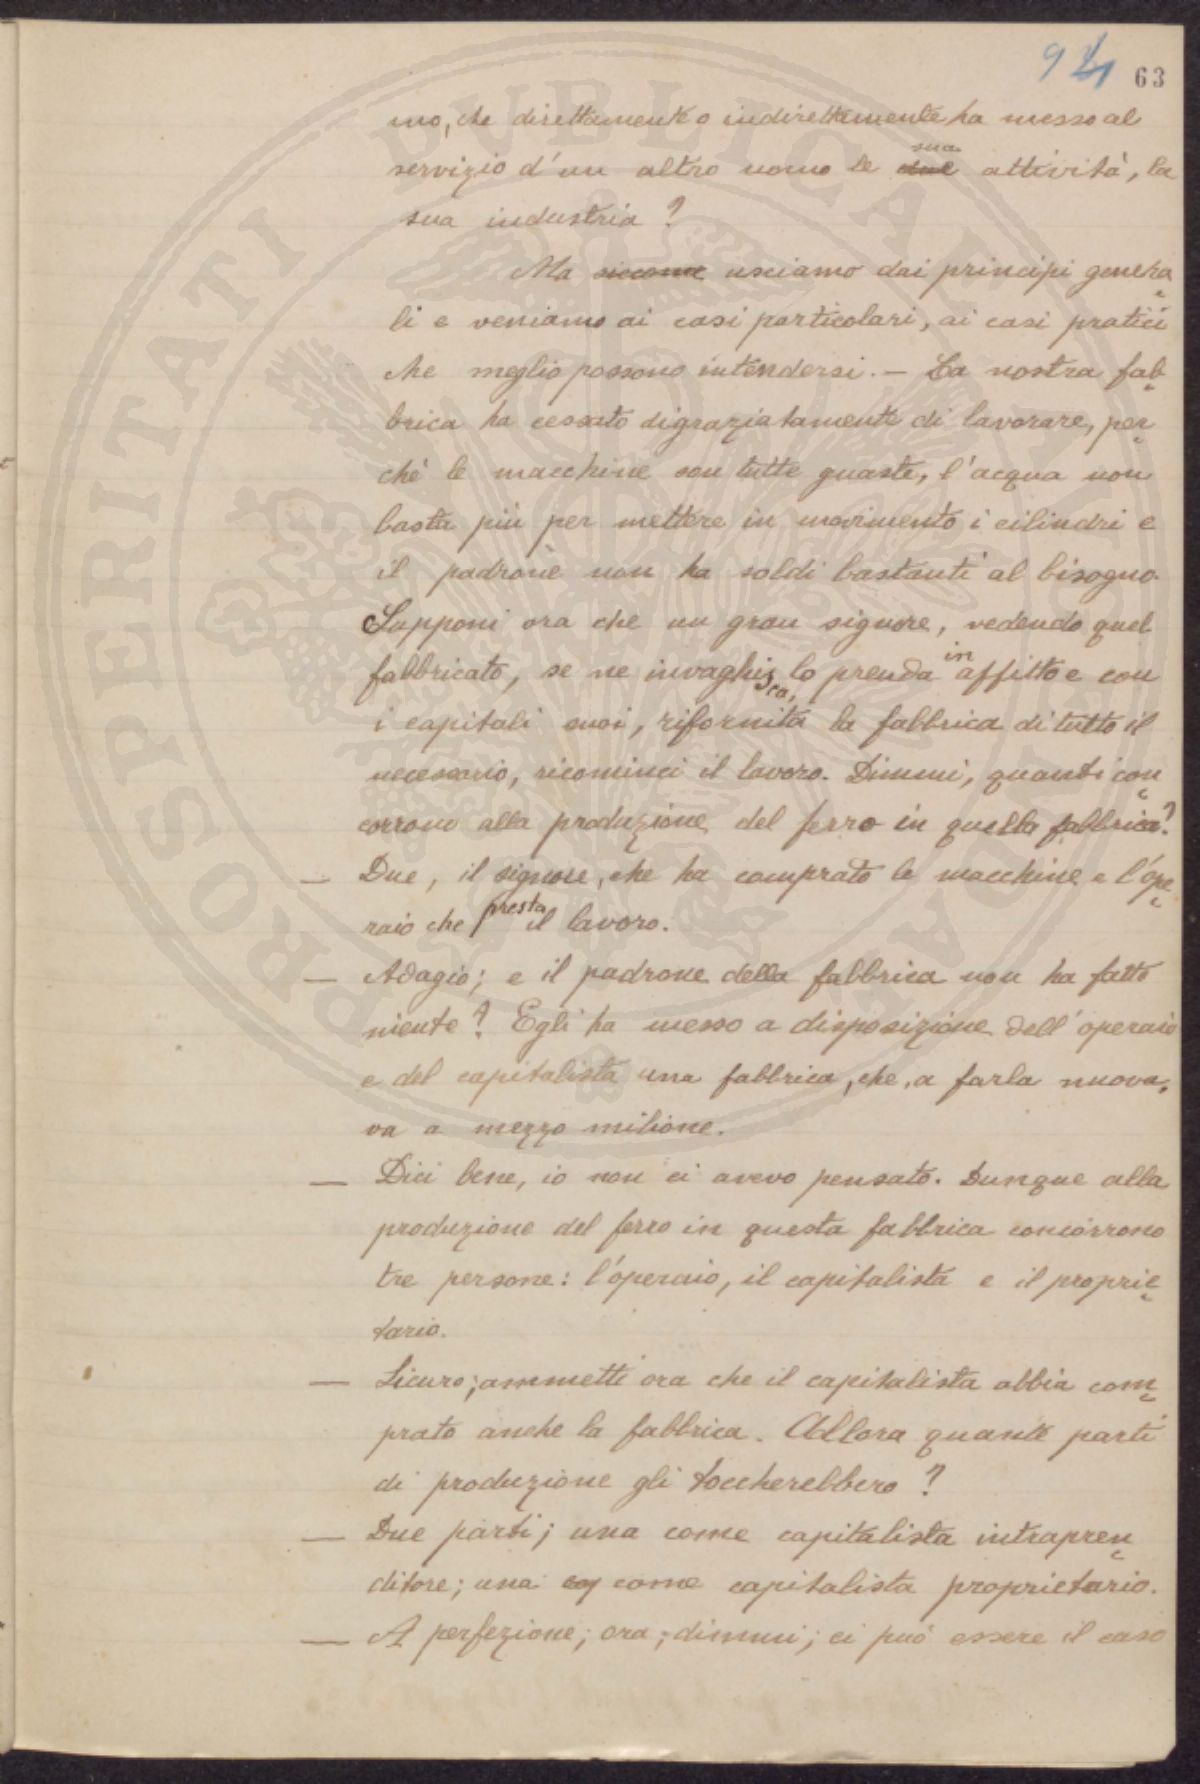 94 63
mo, che direttamente o indirettamente ha messo al
sua
servizio d'un altro uomo le due attività, la
sua industria?
Ma siccome usciamo dai principi genera
li e veniamo ai casi particolari, ai casi pratici
che meglio possono intendersi. — La nostra fab
brica ha cessato digraziatamente di lavorare, per
chè le macchine son tutte guaste, l'acqua non
basta più per mettere in movimento i cilindri e
il padrone non ha soldi bastanti al bisogno.
Supponi ora che un gran signore, vedendo quel
fabbricato, se ne invaghisca, lo prenda in affitto e con
i capitali suoi, rifornita la fabbrica di tutto il
necessario, ricominci il lavoro. Dimmi, quanti con
corrono alla produzione del ferro in quella fabbrica?
— Due, il signore, che ha comprato le macchine e l'ope
raio che presta il lavoro.
— Adagio; e il padrone della fabbrica non ha fatto
niente? Egli ha messo a disposizione dell'operaio
e del capitalista una fabbrica, che, a farla nuova,
va a mezzo milione.
— Dici bene, io non ci avevo pensato. Dunque alla
produzione del ferro in questa fabbrica concorrono
tre persone: l'operaio, il capitalista e il proprie
tario.
— Sicuro; ammetti ora che il capitalista abbia com
prato anche la fabbrica. Allora quante parti
di produzione gli toccherebbero?
— Due parti; una come capitalista intrapren
ditore; una come capitalista proprietario.
— A perfezione; ora; dimmi; ci può essere il caso
PROSPERITATI PVBLICAE